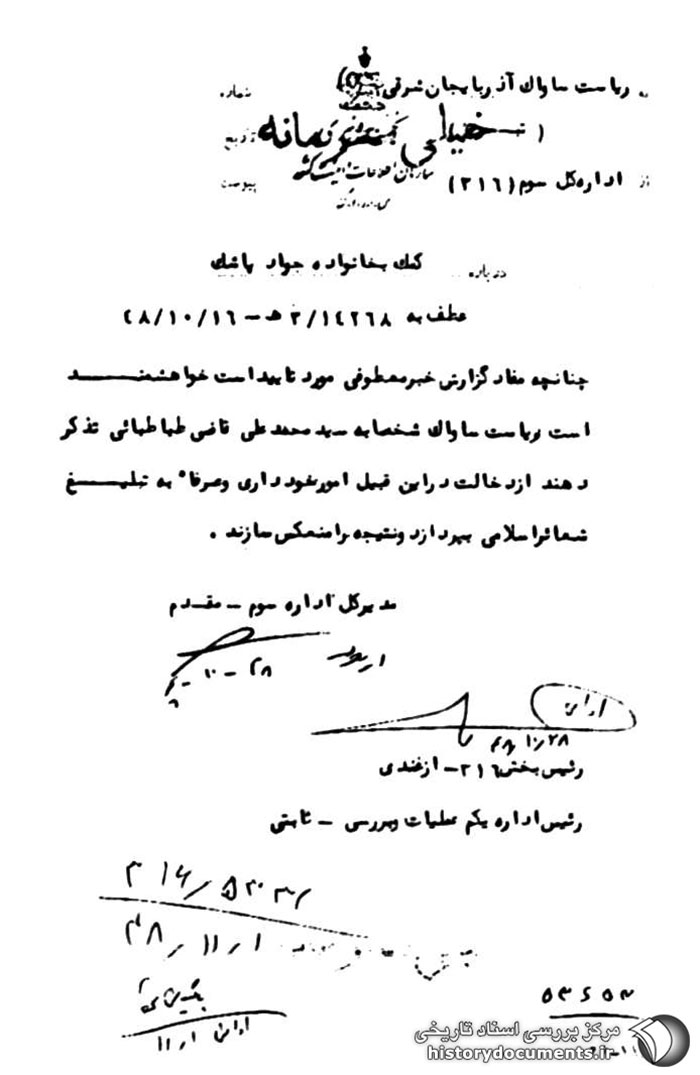 به ریاست ساواک آذربایجان شرقی
شماره
خیلی محرمانه
تاریخ
سازمان اطلاعات و امنیت کشور
از اداره کل سوم (۳۱۶)
پیوست
درباره کمک بخانواده جواد پاشک
عطف به ۱۴۲۶۸/ ۳ هـ - ۴۸/۱۰/۱۶
چنانچه مفاد گزارش خبر معطوفی مورد تایید است خواهشمند
است ریاست ساواک شخصا به سید محمد علی قاضی طباطبائی تذکر
دهند از دخالت در این قبیل امور خودداری و صرفا" به تبلیغ
شعائر اسلامی بپردازد و نتیجه را منعکس سازند .
مدیر کل اداره سوم - مقدم
۲۸ - ۱۰
۴۸/۱۰/۲۸
رئیس بخش ۳۱۶ - ازغندی
رئیس اداره یکم عملیات و بررسی - ثابتی
۱/۱۱/۴۸
بایگانی
۱/۱۱
۵۳۶۵۳
مرکز بررسی اسناد تاریخی
historydocuments.ir